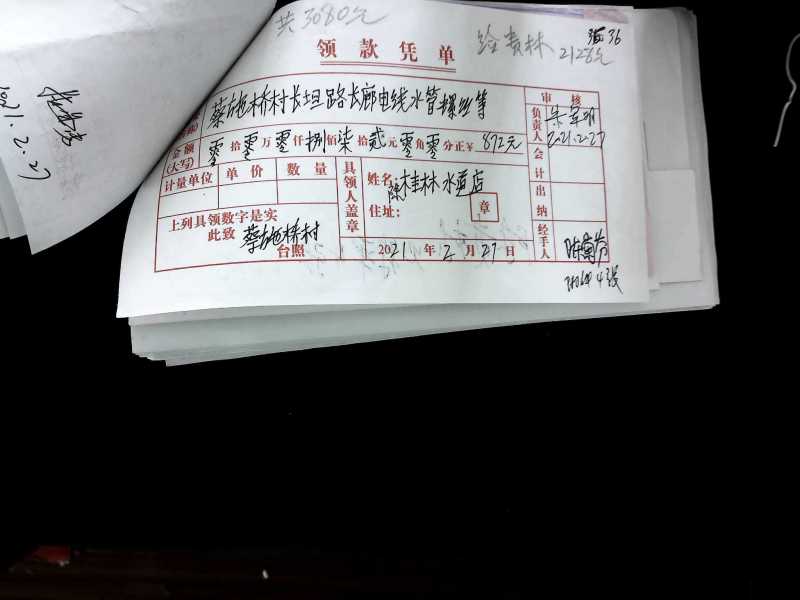 共3080元
领款凭单
给贵林
2128元
36
蔡地桥村长坦路长廊电线水管螺丝等
审核
金额(大写) 零拾零万零仟捌佰柒拾贰元零角零分正¥872元
负责人
2021.2.27
计量单位 单价 数量
具领人盖章
姓名: 陈桂林水道店
住址:
章
会计
出纳
上列具领数字是实
此致 蔡地桥村
台照
2021年2月27日
经手人
4张
2021.2.27